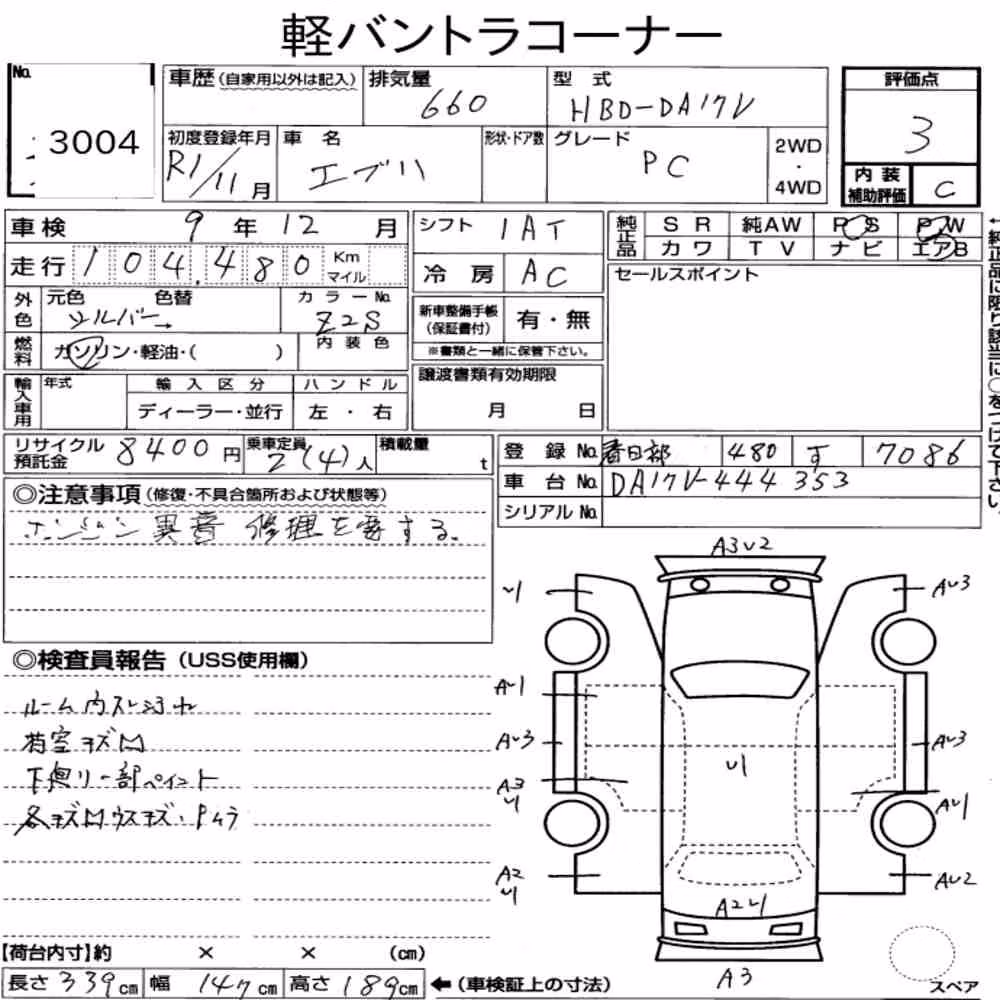 軽バントラコーナー
No. 3004
車歴(自家用以外は記入) 排気量 660 型式 HBD-DA17V
初度登録年月 R1/11月 車名 エブリ 形状・ドア数 グレード PC 2WD・4WD
評価点 3
内装補助評価 C
車検 9年12月
走行 104,480 Km マイル
外色 元色 シルバー 色替 カラーNo. Z2S
燃料 ガソリン・軽油・( ) 内装色
輸入車用 年式 輸入区分 ディーラー・並行 ハンドル 左・右
シフト 1AT
冷房 AC
新車整備手帳(保証書付) 有・無
※書類と一緒に保管下さい。
譲渡書類有効期限
月 日
純正品 SR 純AW PS PW
カワ TV ナビ エアB
セールスポイント
←純正品に限り該当に○をつけて下さい。
リサイクル預託金 8400円 乗車定員 2(4)人 積載量 t
登録No. 春日部 480 す 7086
車台No. DA17V-444353
シリアルNo.
◎注意事項(修復・不具合箇所および状態等)
エンジン異音 修理を要する。
◎検査員報告(USS使用欄)
ルーム内スレヨゴレ
荷室キズ凹
下廻り一部ペイント
各キズ凹ウスキズ・Pムラ
A3U2
U1 AU3
AU1
AU3 U1 AU3
A3
U1 AU1
A2
U1 AU2
A2U1
A3
スペア
【荷台内寸】約 × × (cm)
長さ339cm 幅147cm 高さ189cm ←(車検証上の寸法)